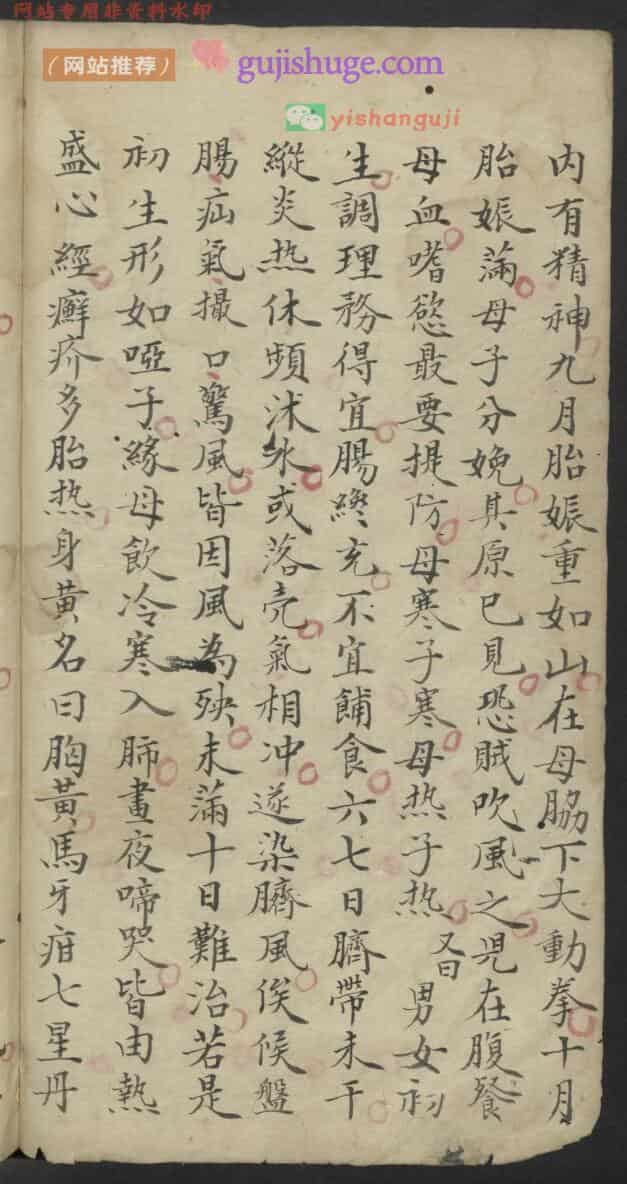 网站专用非资料水印
（网站推荐）
gujishuge.com
yishanguji
内有精神九月胎娠重如山在母脇下大動拳十月
胎娠滿母子分娩其原已見恐賊吹風之児在腹飱
母血嗜慾最要提防母寒子寒母热子热又曰男女初
生調理務得宜腸纔充不宜餔食六七日臍帶未干
縱炎热休頻沐水或落壳氣相冲遂染臍風俟候盤
腸疝氣撮口驚風皆因風為殃未滿十日難治若是
初生形如啞子緣母飲冷寒入肺晝夜啼哭皆由熱
盛心經癬疥多胎热身黃名曰胸黃馬牙疳七星丹